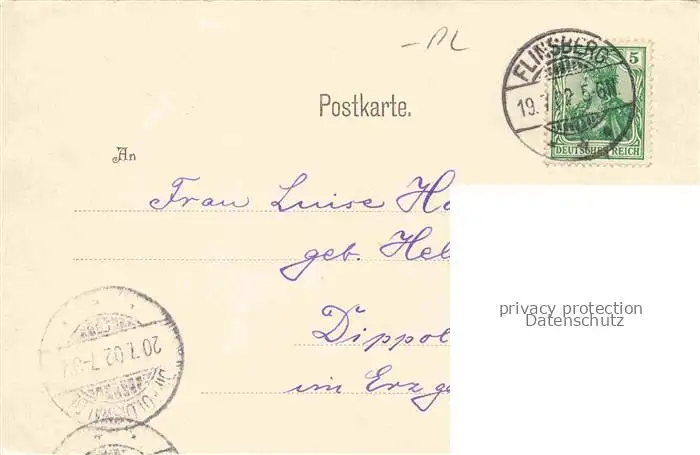 FLINSBERG
19.7.02 5-6N
5
DEUTSCHES REICH
Postkarte.
An
Frau Luise
geb. Hel
privacy protection
Datenschutz
Dippol
im Erzge
20.7.02.7-8V